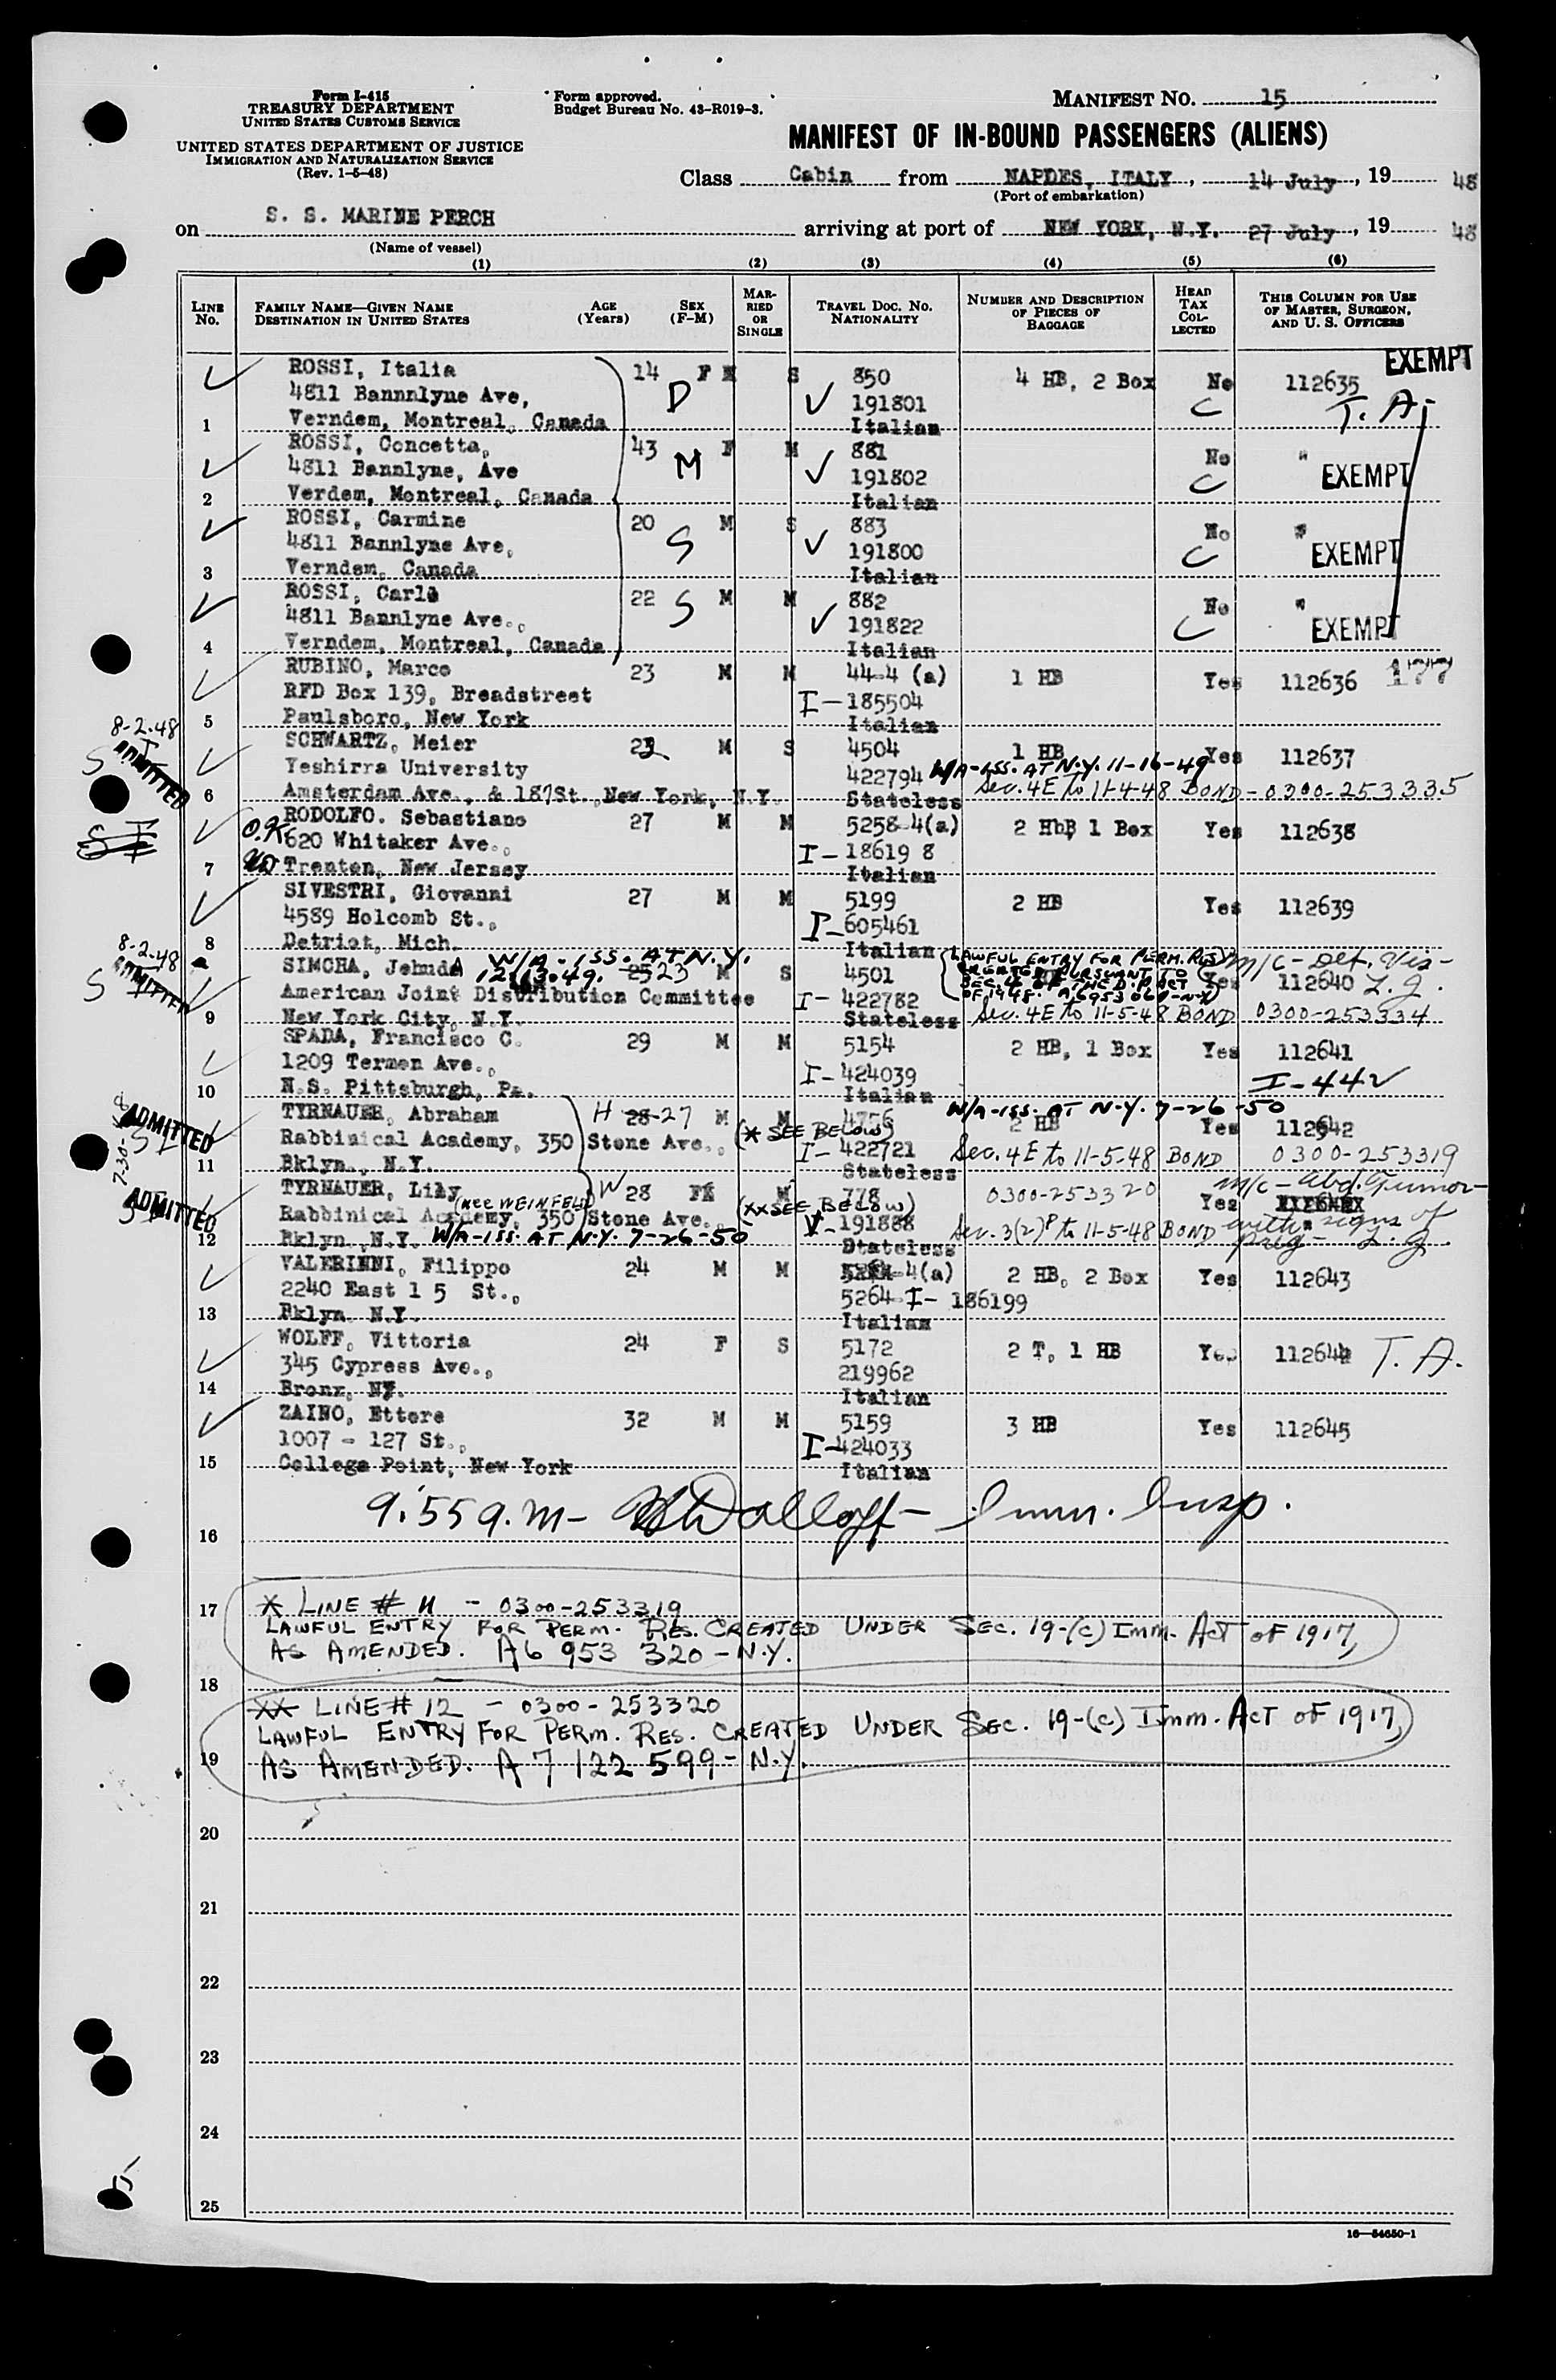 Form I-415
TREASURY DEPARTMENT
UNITED STATES CUSTOMS SERVICE
UNITED STATES DEPARTMENT OF JUSTICE
IMMIGRATION AND NATURALIZATION SERVICE
(Rev. 1-5-48)
Form approved.
Budget Bureau No. 43-R019-3.
MANIFEST NO. 15
MANIFEST OF IN-BOUND PASSENGERS (ALIENS)
Class Cabin from NAPLES, ITALY, 14 July, 19 48
(Port of embarkation)
on S. S. MARINE PERCH arriving at port of NEW YORK, N.Y. 27 July, 19 48
(Name of vessel)
(1) (2) (3) (4) (5) (6)
LINE No. FAMILY NAME—GIVEN NAME DESTINATION IN UNITED STATES AGE (Years) SEX (F-M) MARRIED OR SINGLE TRAVEL DOC. No. NATIONALITY NUMBER AND DESCRIPTION OF PIECES OF BAGGAGE HEAD TAX COLLECTED THIS COLUMN FOR USE OF MASTER, SURGEON, AND U. S. OFFICERS
ROSSI, Italia 14 F S 850 4 HB, 2 Box No 112635 EXEMPT
4811 Bannnlyne Ave, D 191801 C T. A.
1 Verndem, Montreal, Canada Italian
ROSSI, Concetta, 43 F M 881 No "
4811 Bannlyne, Ave M 191802 C EXEMPT
2 Verdem, Montreal, Canada Italian
ROSSI, Carmine 20 M S 883 No "
4811 Bannlyne Ave, S 191800 C EXEMPT
3 Verndem, Canada Italian
ROSSI, Carlo 22 S M M 882 No "
4811 Bannlyne Ave., 191822 C EXEMPT
4 Verndem, Montreal, Canada Italian
RUBINO, Marco 23 M M 44-4 (a) 1 HB Yes 112636 177
RFD Box 139, Breadstreet I-185504
5 Paulsboro, New York Italian
8-2-48 ADMITTED S I
SCHWARTZ, Meier 22 M S 4504 1 HB Yes 112637
Yeshirra University 422794 W/A-ISS. AT N.Y. 11-16-49
6 Amsterdam Ave., & 187St., New York, N.Y. Stateless Sec. 4E to 11-4-48 BOND-0300-253335
RODOLFO. Sebastiano 27 M M 5258-4(a) 2 HbB 1 Box Yes 112638
S I O.K. 620 Whitaker Ave., I-18619 8
7 Trenton, New Jersey Italian
SIVESTRI, Giovanni 27 M M 5199 2 HB Yes 112639
4589 Holcomb St., I-605461
8 Detriot, Mich. Italian
8-2-48 ADMITTED S I
W/A-ISS. AT N.Y. 12/13.49.
SIMCHA, Jehuda 25 23 M S 4501 Yes 112640
LAWFUL ENTRY FOR PERM. RES. CREATED PURSUANT TO SEC. 4 OF THE D.P. ACT OF 1948. A6953061-N.Y.
M/C - Def. Vis- L. J.
American Joint Distribution Committee I-422782
9 New York City, N.Y. Stateless Sec. 4E to 11-5-48 BOND 0300-253334
SPADA, Francisco C. 29 M M 5154 2 HB, 1 Box Yes 112641
1209 Termon Ave., I-424039 I-442
10 N.S. Pittsburgh, Pa. Italian
7-30-48 ADMITTED S I
TYRNAUER, Abraham H 28-27 M M 4756 2 HB Yes 112642
W/A-ISS. AT N.Y. 7-26-50
Rabbinical Academy, 350 Stone Ave., (* SEE BELOW) I-422721
11 Bklyn., N.Y. Stateless Sec. 4E to 11-5-48 BOND 0300-253319
ADMITTED S I
TYRNAUER, Lily W 28 F M 778 0300-253320 Yes M/C - Abd. Tumor-
(NEE WEINFELD)
Rabbinical Academy, 350 Stone Ave., (XX SEE BELOW) V-191888 Sec. 3(2)P to 11-5-48 BOND with signs of preg- L. J.
12 Bklyn, N.Y. W/A-ISS. AT N.Y. 7-26-50 Dtateless
VALERINNI, Filippo 24 M M 4(a) 2 HB, 2 Box Yes 112643
2240 East 1 5 St., 5264-I-186199
13 Bklyn. N.Y. Italian
WOLFF, Vittoria 24 F S 5172 2 T, 1 HB Yes 112644 T. A.
345 Cypress Ave., 219962
14 Bronx, NY. Italian
ZAINO, Ettore 32 M M 5159 3 HB Yes 112645
1007 - 127 St., I-424033
15 College Point, New York Italian
9:55 a.m- Imm. Insp.
16
17 * LINE # 11 - 0300-253319
LAWFUL ENTRY FOR PERM. RES. CREATED UNDER SEC. 19-(C) IMM. ACT OF 1917,
AS AMENDED. A6 953 320-N.Y.
18
XX LINE # 12 - 0300-253320
LAWFUL ENTRY FOR PERM. RES. CREATED UNDER SEC. 19-(C) IMM. ACT OF 1917,
19 AS AMENDED. A 7 122 599-N.Y.
20
21
22
23
24
25
16—54650-1